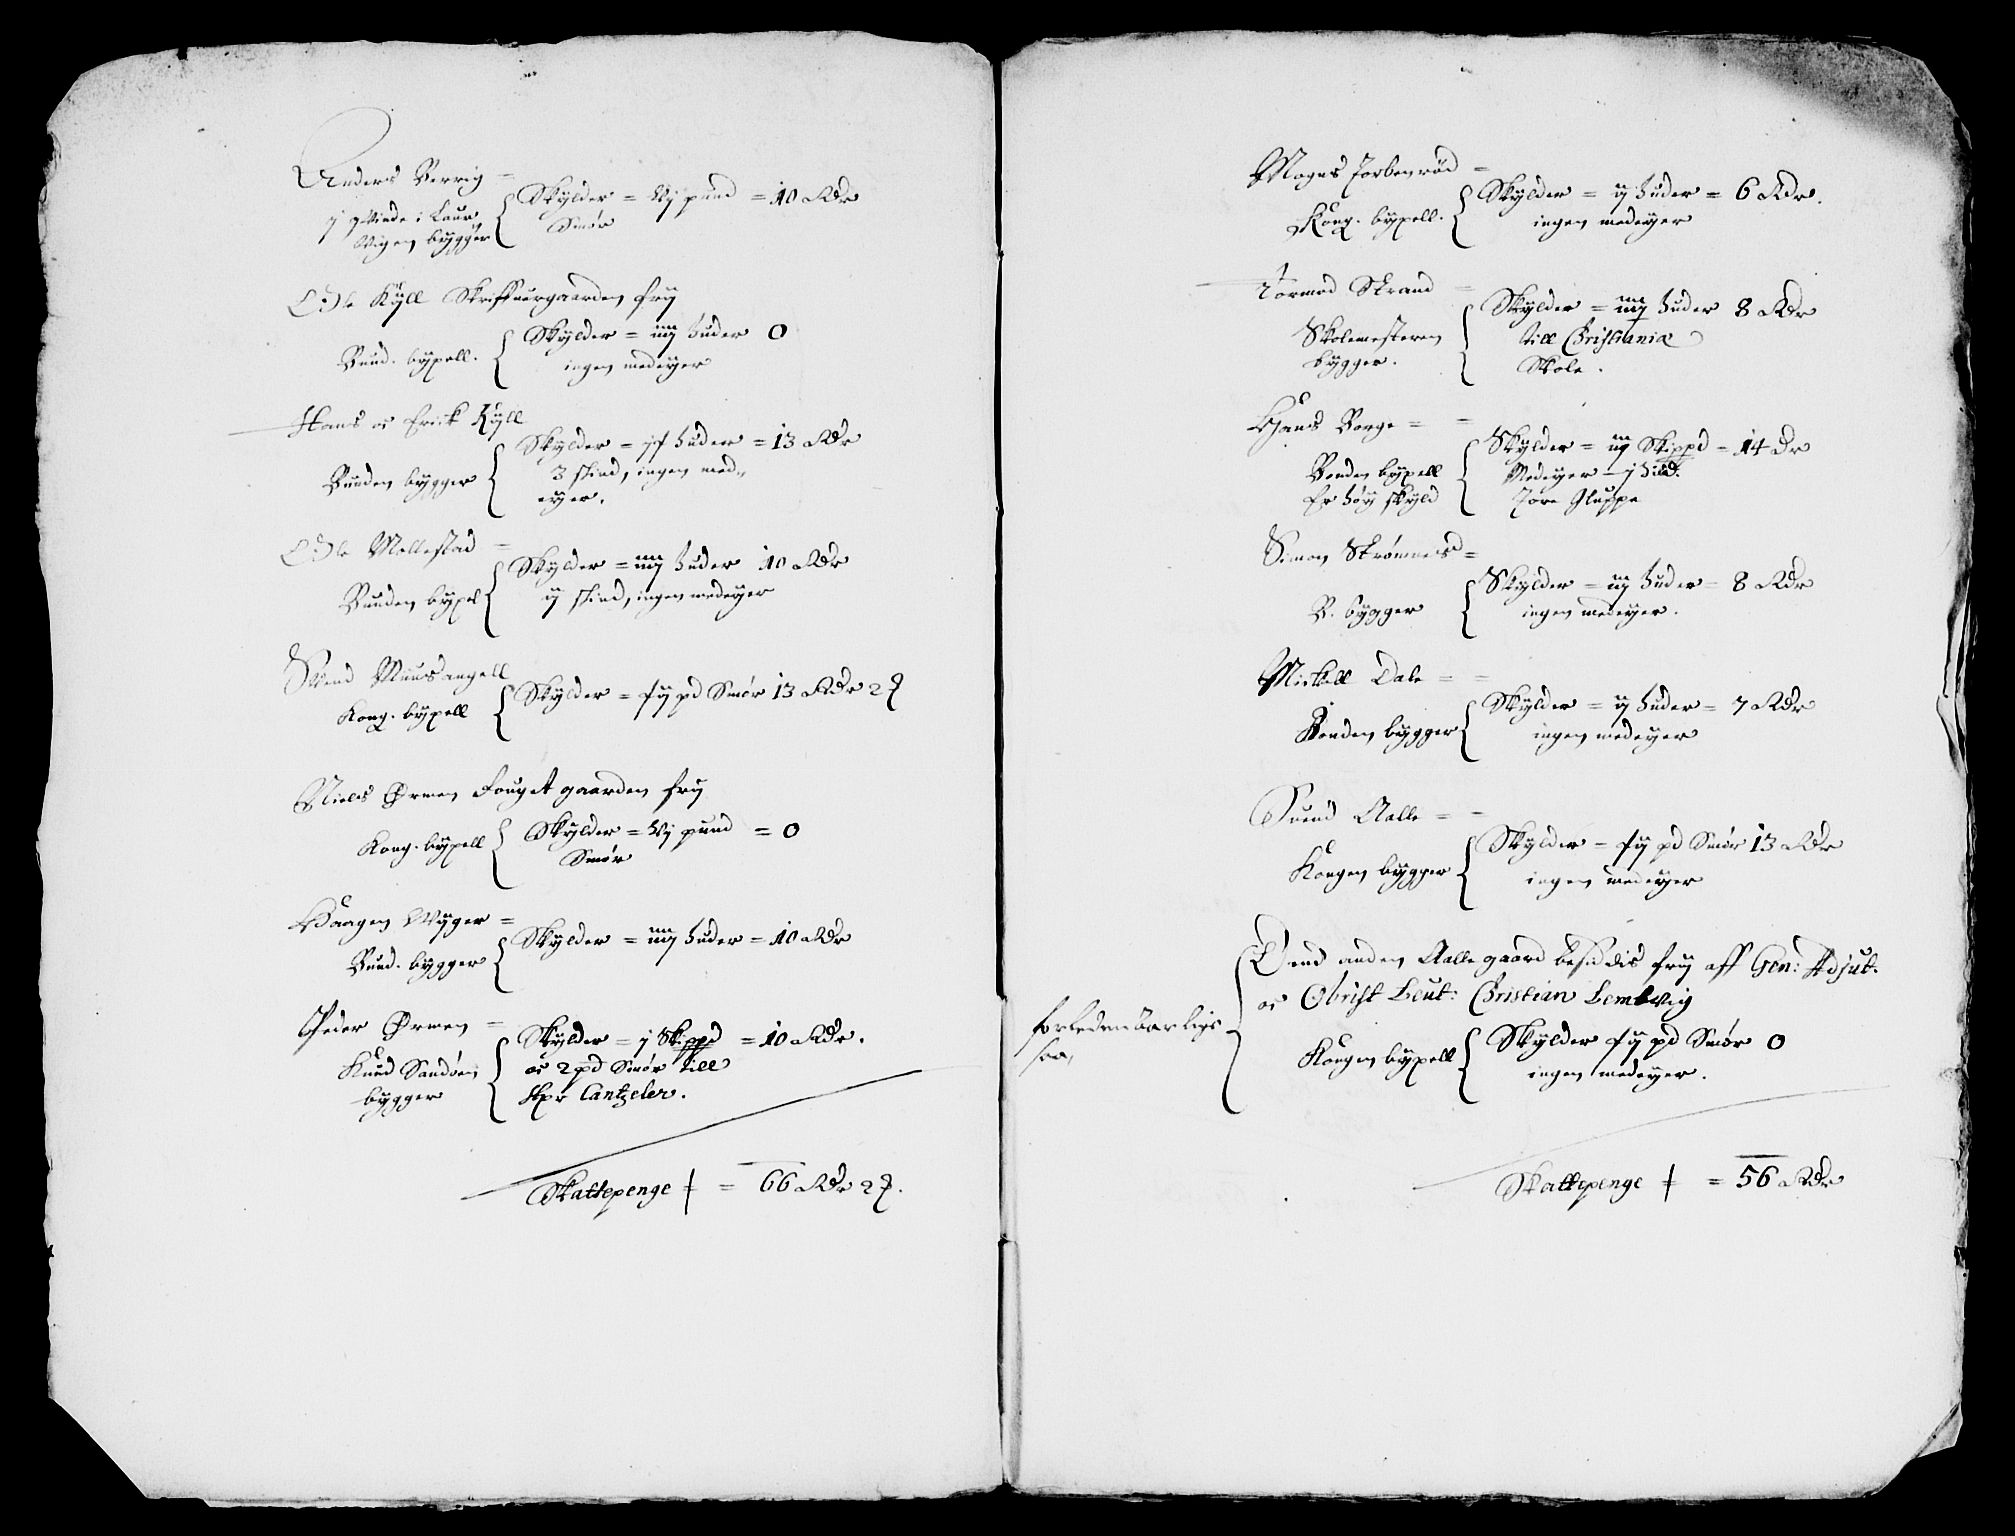 Anders Berrig =
j qvinde i Laur
vigen bygger
Skylder = vj pund = 10 Rdr
Smør
Ole Kyll Skriffuergaarden fry
Bund. bypell.
Skylder = iiij huder 0
ingen medeyer
Hans oc Erick Kyll
Bunden bygger
Skylder = huder = 13 Rdr
3 skind, ingen med„
eyer.
Ole Mellestad =
Bunden bypel
Skylder = iiij huder 10 Rdr
ij skind, ingen medeyer
Svend Muusangell
Kong. bypell
Skylder = pd Smør 13 Rdr 2
Niels Ørmen Fouget gaarden fry
Kong. bypell
Skylder = vj pund = 0
Smør
Haagen Wyger =
Bund. bygger
Skylder = iiij huder = 10 Rdr
Peder Ørmen =
Knud Sandøen
bygger
Skylder = j Skippd = 10 Rdr.
oc 2 pd Smør till
Hr Cantzeler.
Skattepenge = 66 Rdr 2
Mogns Torbenrød =
Kong. bypell.
Skylder = ij huder = 6 Rdr.
ingen medeyer
Tormod Strand =
Skolemesteren
bygger.
Skylder = iiij huder 8 Rdr
till Christiania
Skole.
Hans Borge = =
Bonden bypell
Er høy skyld
Skylder = iij Skippd = 14 Dr
Medeyer – j hud.
Tore Gluppe
Simon Strømnes =
B. bygger
Skylder = iij huder = 8 Rdr
ingen medeyer.
Mickell Dale = =
Bonden bygger
Skylder = ij huder = 7 Rdr
ingen medeyer
Suend Aalle = =
Kongen bygger
Skylder = pd Smør 13 Rdr
ingen medeyer
Dend anden Aalle gaard besiddis fry aff Gen: Adjut.
oc Obrist Leut: Christian Lembvig
saa
Kongen bypell
Skylder pd Smør 0
ingen medeyer.
Skattepenge = 56 Rdr